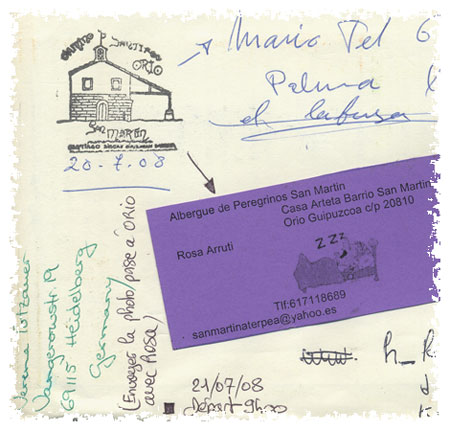 CAMINO SANTIAGO
ORIO
SAN MARTIN
20-7-08
→ Mario Del
Palma
Albergue de Peregrinos San Martin
Casa Arteta Barrio San Martin
Orio Guipuzcoa c/p 20810
Rosa Arruti
zzz
Tlf:617118689
sanmartinaterpea@yahoo.es
69115 Heidelberg
Germany
(Envoyer la photo/pose à ORIO
avec ROSA)
21/07/08
Départ 9h00